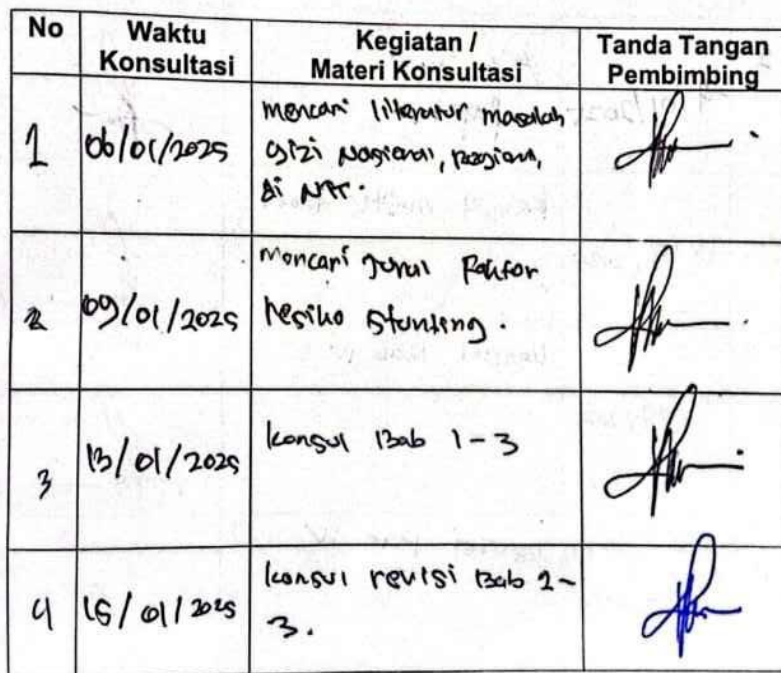 No
Waktu
Konsultasi
Kegiatan /
Materi Konsultasi
Tanda Tangan
Pembimbing
1
06/01/2025
mencari literatur masalah
gizi Nasional, Regional,
di NTT.
2
09/01/2025
mencari Jurnal Faktor
resiko Stunting.
3
13/01/2025
konsul Bab 1-3
4
15/01/2025
konsul revisi Bab 2-
3.